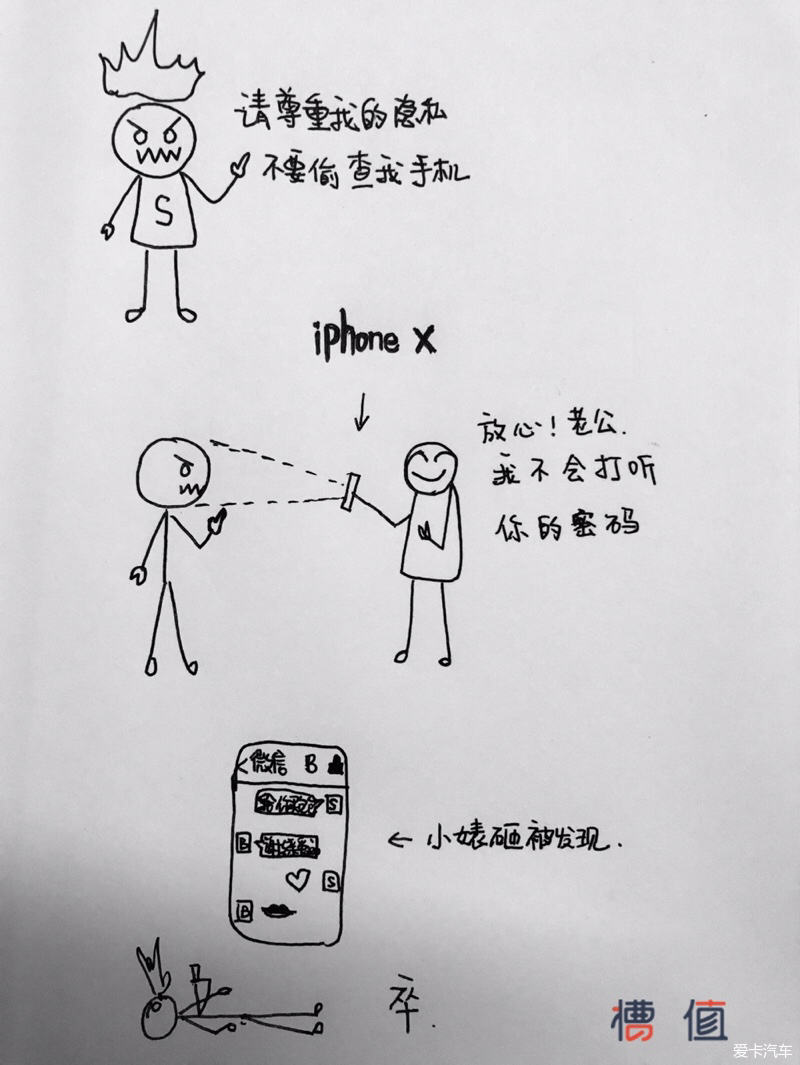 请尊重我的隐私
不要偷查我手机
S
iphone X
放心！老公.
我不会打听
你的密码
<微信 B
S
B
S
B
← 小婊砸被发现.
卒.
槽值
爱卡汽车